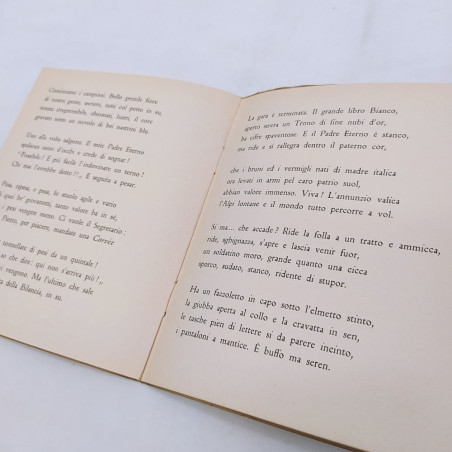 Cominciano i campioni. Bella gentile fiore
di nostra gente, arditi, tutti col petto in su,
viso irreprensibile, chiomati, lustri, il core
gravato sotto un nuvolo di bei nastrini blu.
Uno alla volta salgono. Il mite Padre Eterno
spalanca tanto d'occhi e crede di sognar!
"Possibile! È più facile l'indovinare un terno!
Chi mai l'avrebbe detto?!„. E seguita a pesar.
Pesa, ripesa, e posa, lo stuolo agile e vario
quei be' giovanotti, tanto valore ha in sé,
i pesi vengon meno. Ci vuole il Segretario:
Pietro, per piacere, mandate una Corvée
tonnellate di pesi da un quintale!
so che dire: qui non s'arriva più!„
vengono. Ma l'ultimo che sale
della Bilancia, in su.
La gara è terminata. Il grande libro Bianco,
aperto sovra un Trono di fine nubi d'or,
ha cifre spaventose. E il Padre Eterno è stanco,
ma ride e si rallegra dentro il paterno cor,
che i bruni ed i vermigli nati di madre italica
ora levati in armi pel caro patrio suol,
abbian valore immenso. Viva! L'annunzio valica
l'Alpi lontane e il mondo tutto percorre a vol.
Si ma... che accade? Ride la folla a un tratto e ammicca,
ride, sghignazza, s'apre e lascia venir fuor,
un soldatino moro, grande quanto una cicca
sporco, sudato, stanco, ridente di stupor.
Ha un fazzoletto in capo sotto l'elmetto stinto,
la giubba aperta al collo e la cravatta in sen,
le tasche pien di lettere sì da parere incinto,
i pantaloni a mantice. È buffo ma seren.